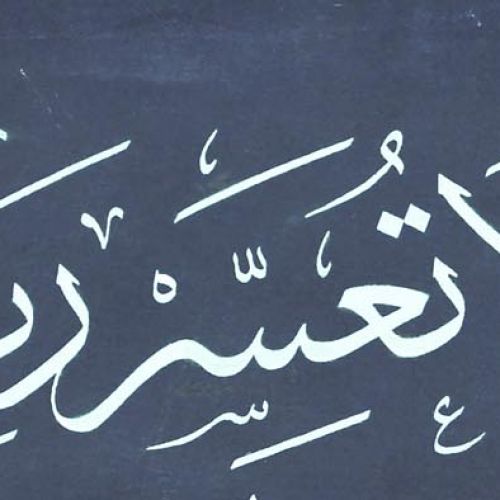 لَا تُعَسِّرْ رَبِّ